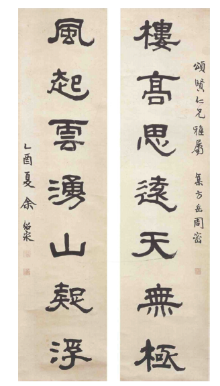 樓高思遠天無極
頌賢仁兄雅屬 集方岳周密
風起雲湧山疑浮
乙酉夏 余紹宋